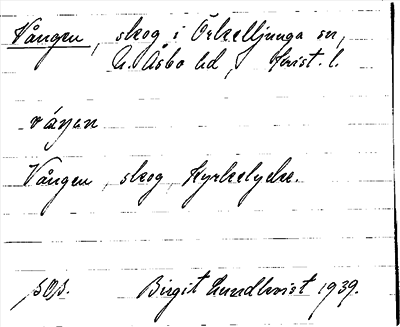 Vången, skog i Örkelljunga sn,
N. Åsbo hd, Krist. l.
våŋen
Vången, skog, Kyrkelycke.
Birgit Lundkvist 1939.